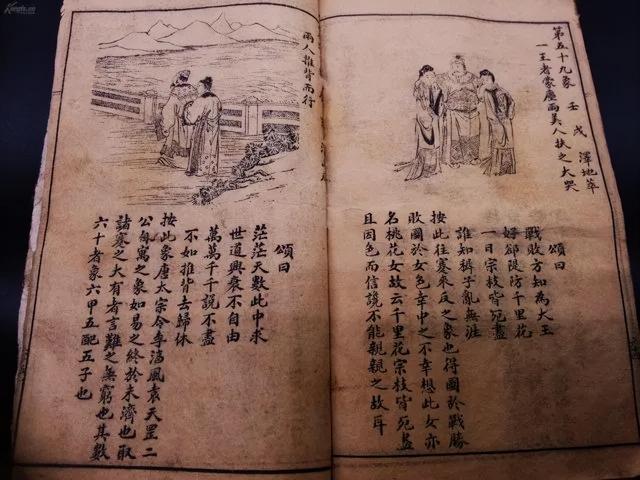 第五十九象 壬戌 澤地萃
一王者蒙塵兩美人扶之大哭
頌曰
戰敗方知為大王
好郤隄防千里花
一日宗枝皆宛盡
誰知子亂無涯
按此往蹇來反之象也得圖於戰勝
敗圖於女色幸中之不幸想此女亦
名桃花女故云千里花宗枝皆宛盡
且因色而信讒不能親親之故耳
兩人推背而行
頌曰
茫茫天數此中求
世道興衰不自由
萬萬千千說不盡
不如推背去歸休
按此象唐太宗令李淳風袁天罡二
公自寓之象如易之終於未濟也取
諸蹇之大有者言難之無窮也其數
六十者象六甲五配五子也